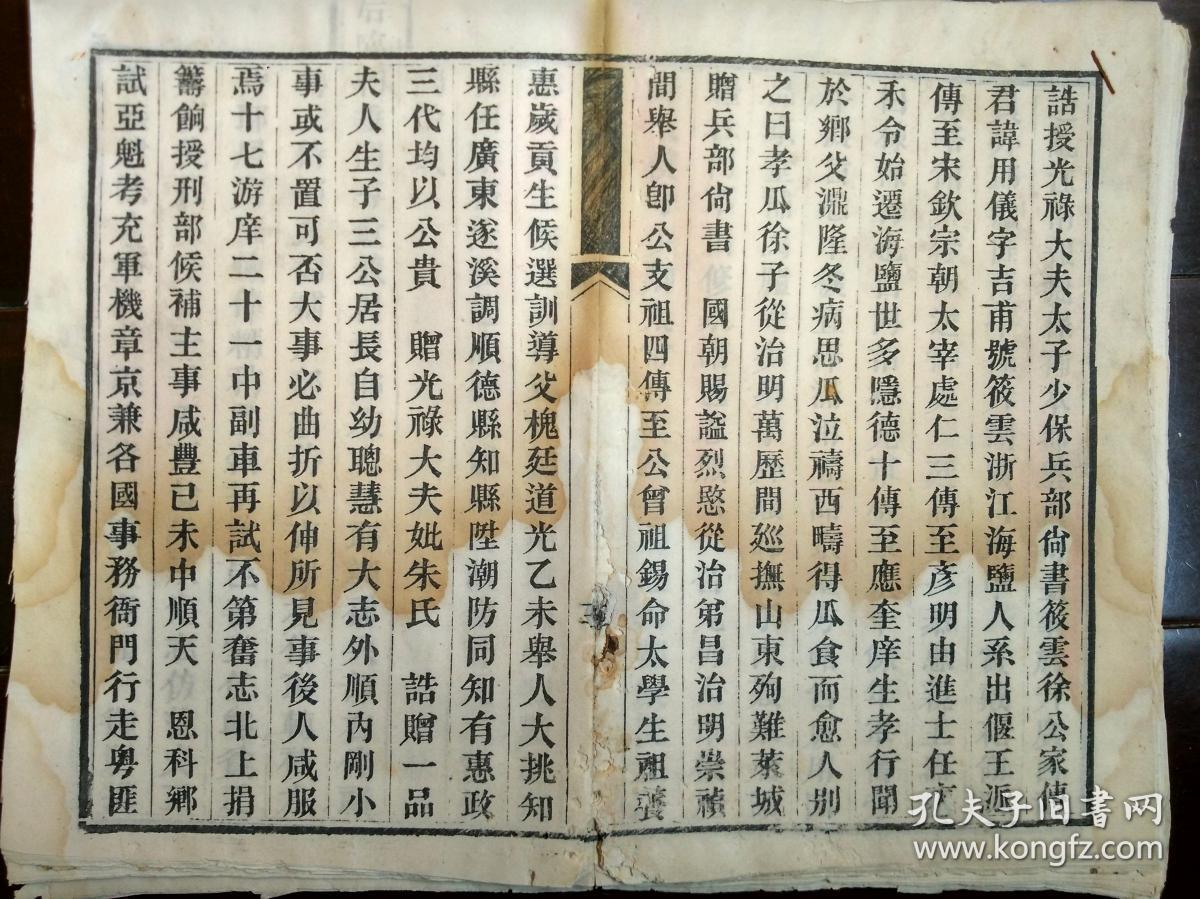 誥授光祿大夫太子少保兵部尙書筱雲徐公家傳
君諱用儀字吉甫號筱雲浙江海鹽人系出偃王派
傳至宋欽宗朝太宰處仁三傳至彥明由進士任
禾令始遷海鹽世多隱德十傳至應奎庠生孝行聞
於鄉父濎隆冬病思瓜泣禱西疇得瓜食而愈人别
之曰孝瓜徐子從治明萬歷間廵撫山東殉難萊城
贈兵部尙書 國朝賜謚烈愍從治弟昌治明崇禎
間舉人卽公支祖四傳至公曾祖錫命太學生祖養
惠歲貢生候選訓導父槐廷道光乙未舉人大挑知
縣任廣東遂溪調順德縣知縣陞潮防同知有惠政
三代均以公貴 贈光祿大夫妣朱氏 誥贈一品
夫人生子三公居長自幼聰慧有大志外順內剛小
事或不置可否大事必曲折以伸所見事後人咸服
焉十七游庠二十一中副車再試不第奮志北上捐
籌餉授刑部候補主事咸豐已未中順天 恩科鄉
試亞魁考充軍機章京兼各國事務衙門行走粤匪
孔夫子旧书网
www.kongfz.com